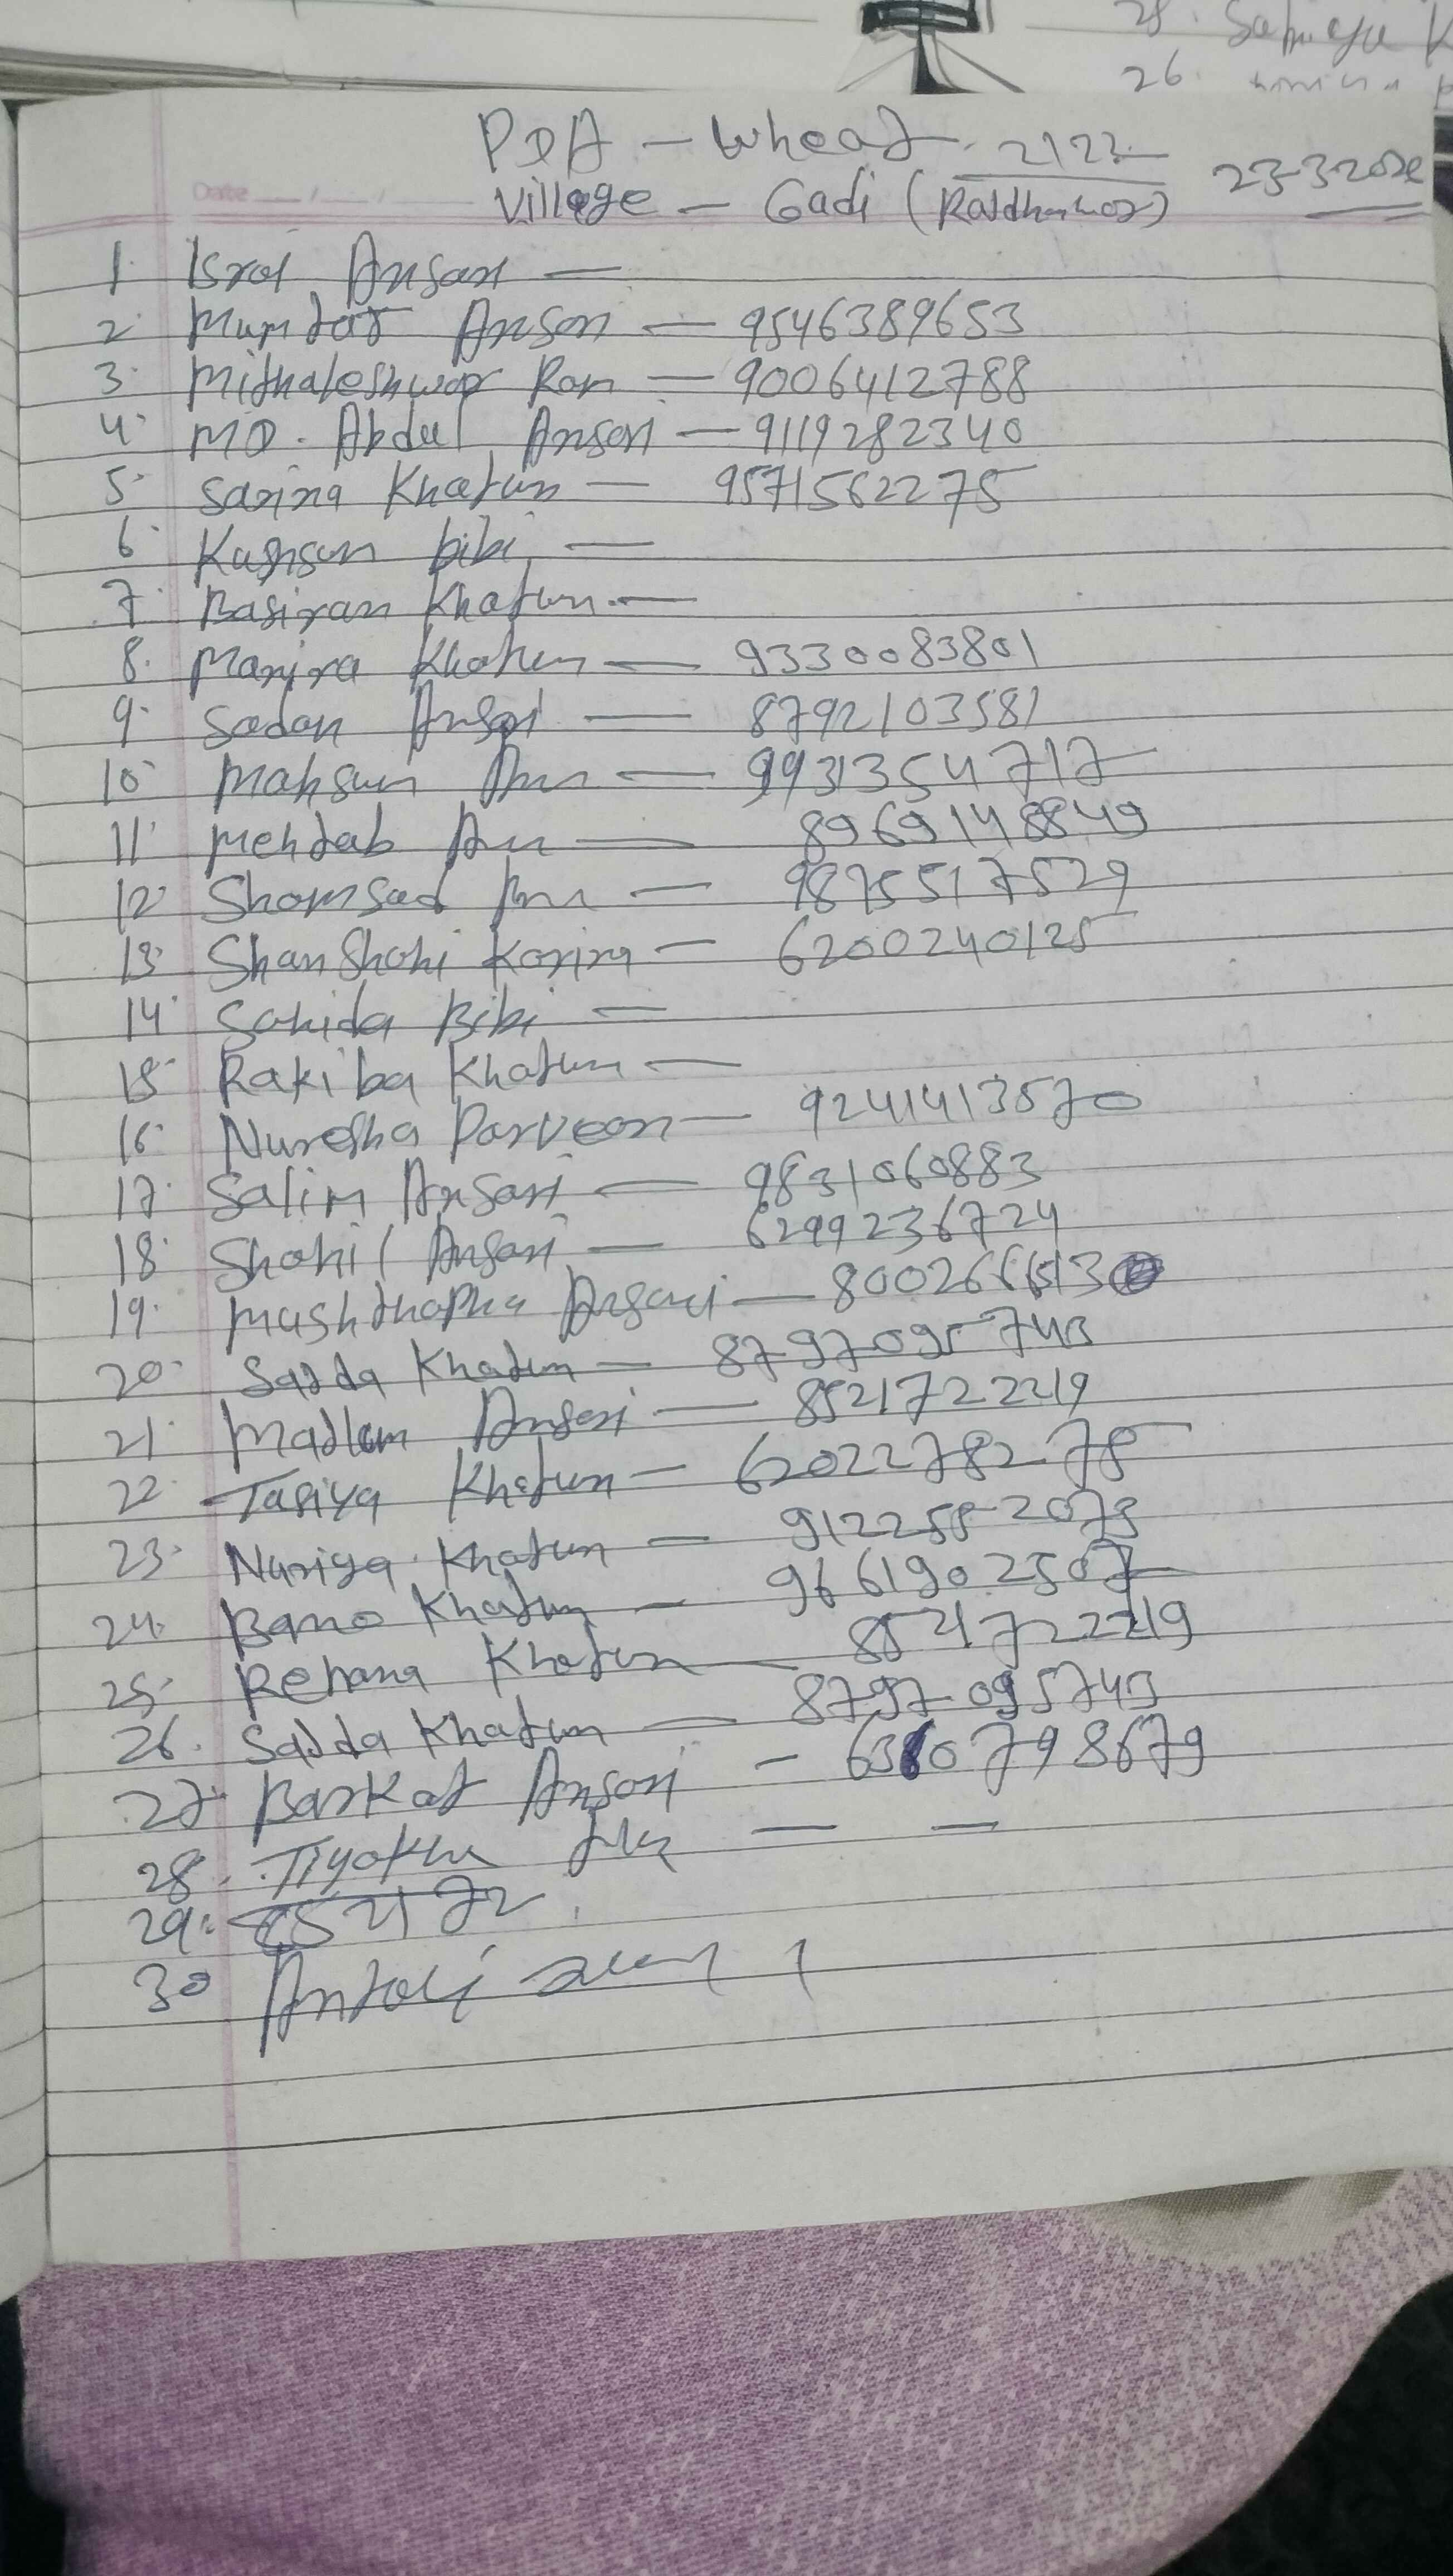 28. Sahnaju K
26.
PDA - Wheat 2122
23-3-202
Date / /
Village - Gadi (Rajdhanwar)
1. Isral Ansari -
2. Mumtaj Ansari - 9546389653
3. Mithaleshwar Ram - 9006412788
4. MD. Abdul Ansari - 9119282340
5. Sarina Khatun - 9571562275
6. bibi -
7. Basiran Khatun -
8. Khatun - 9330083801
9. Sadan Ansari - 8792103581
10. Mahsun - 9931354717
11. Mehtab - 8969148849
12. Shamsad - 9875517529
13. Shanshahi - 6200240125
14. Sahida Bibi -
15. Rakiba Khatun -
16. Nuresha Parveen - 9241413570
17. Salim Ansari - 9831060883
18. Shahil Ansari - 6299236724
19. Mushthapha Ansari -
20. Sajda Khatun - 8797095743
21. Ansari - 8521722219
22. Tasiya Khatun - 6202278278
23. Nuriya Khatun - 9122582073
24. Bano Khatun - 9661902507
25. Rehana Khatun - 8521722219
26. Sajda Khatun - 8797095743
27. Barkat Ansari -
28. - -
29. 852172
30